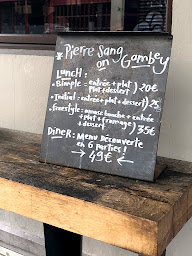 * Pierre Sang
on Gambey
Lunch :
• Simple - entrée + plat
plat + dessert } 20€
• Initial = entrée + plat + dessert } 25€
• Freestyle = amuse bouche + entrée
+ plat + fromage
+ dessert } 35€
Diner : Menu Découverte
en 6 parties !
→ 49€ ←